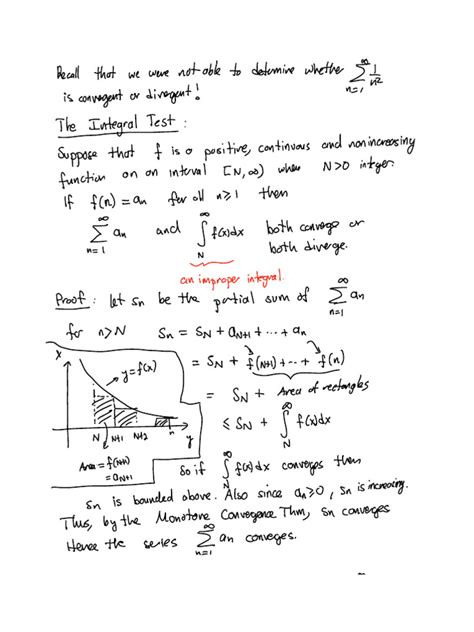 Recall that we were not able to determine whether ∞∑n=1 1/n²
is convergent or divergent!
The Integral Test :
Suppose that f is a positive, continuous and nonincreasing
function on an interval [N,∞) where N>0 integer.
If f(n) = an for all n≥1 then
∞∑n=1 an and ∞∫N f(x)dx both converge or
both diverge.
an improper integral.
Proof : let Sn be the partial sum of ∞∑n=1 an
for n>N Sn = SN + aN+1 + ... + an
= SN + f(N+1) + ... + f(n)
= SN + Area of rectangles
≤ SN + ∞∫N f(x)dx
x
y=f(x)
N N+1 N+2 n y
Area = f(N+1)
= aN+1
So if ∞∫N f(x)dx converges then
Sn is bounded above. Also since an≥0, Sn is increasing.
Thus, by the Monotone Convergence Thm, Sn converges
Hence the series ∞∑n=1 an converges.